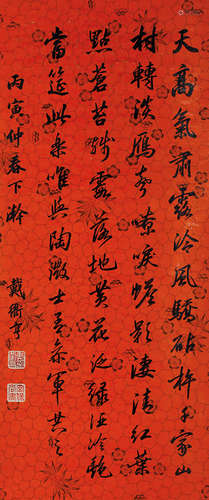 天高氣肅露冷風驕砧杵千家山
村轉淡雁奔嘹唳蟾影淒清紅葉
點蒼苔暗露落地黃花泛綠酒冷艷
當筵此乐唯與陶徵士孟參軍共之
丙寅仲春下澣
戴衢亨